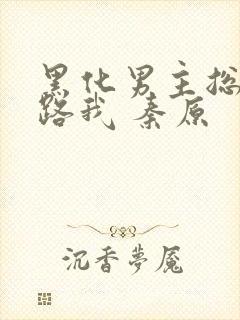 黑化男主总
路我 秦原
沉香夢魘